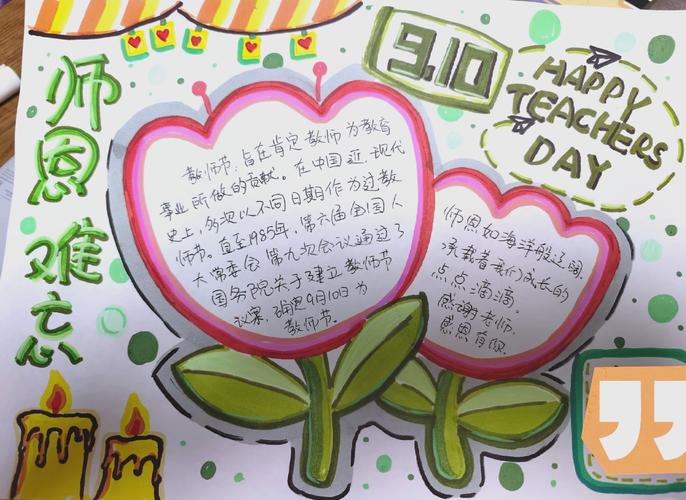 师恩难忘
9.10
HAPPY
TEACHERS
DAY
教师节,旨在肯定教师为教育
事业所做的贡献。在中国近、现代
史上,多次以不同日期作为过教
师节。直至1985年,第六届全国人
大常委会第九次会议通过了
国务院关于建立教师节
议案,确定9月10日为
教师节。
师恩如海洋般辽阔,
承载着我们成长的
点点滴滴。
感谢老师,
感恩有您.